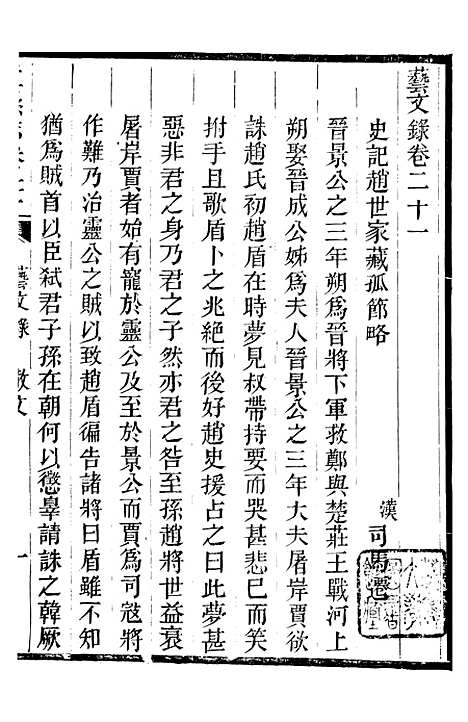 藝文錄卷二十一
史記趙世家藏孤節略
漢 司馬遷
晉景公之三年朔爲晉將下軍救鄭與楚莊王戰河上
朔娶晉成公姊爲夫人晉景公之三年大夫屠岸賈欲
誅趙氏初趙盾在時夢見叔帶持要而哭甚悲已而笑
拊手且歌盾卜之兆絕而後好趙史援占之曰此夢甚
惡非君之身乃君之子然亦君之咎至孫趙將世益衰
屠岸賈者始有寵於靈公及至於景公而賈爲司寇將
作難乃治靈公之賊以致趙盾徧告諸將曰盾雖不知
猶爲賊首以臣弒君子孫在朝何以懲辠請誅之韓厥
藝文錄 散文 一